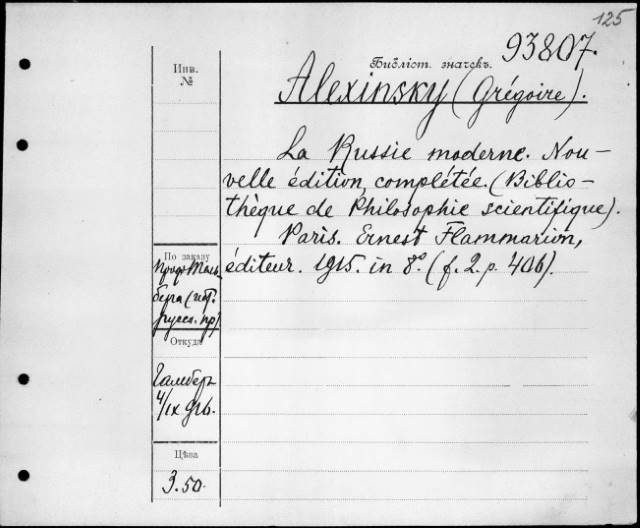 125
Библіот. значекъ. 93807.
Инв.
№
Alexinsky (Grégoire).
La Russie moderne. Nou-
velle édition, complétée. (Biblio-
thèque de Philosophie scientifique).
Paris. Ernest Flammarion,
éditeur. 1915. in 8º. (f. 2. p. 406).
По заказу
проф. Таль
берга (ист.
русск. пр)
Откуда
4/IX 916.
Цѣна
3.50.